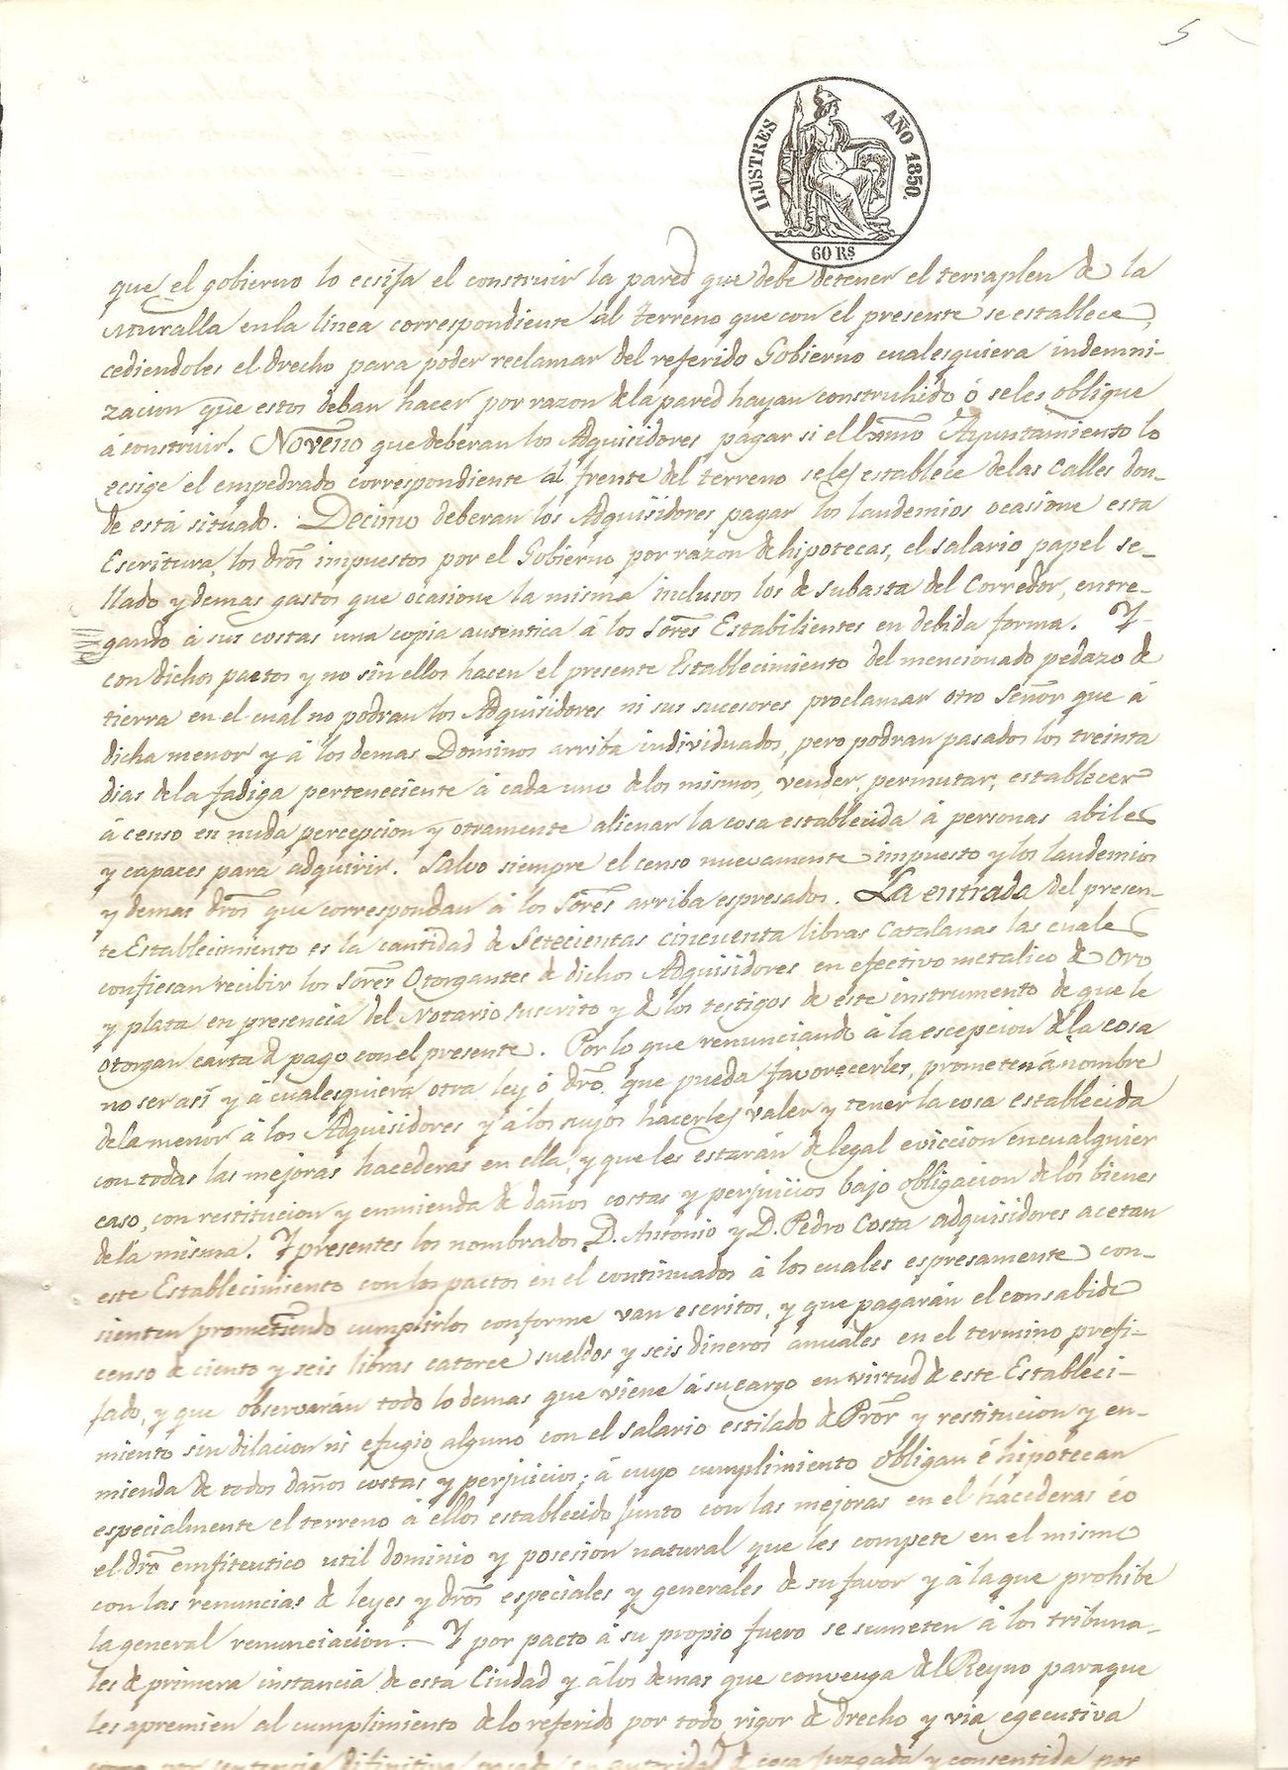 5
ILUSTRES AÑO 1850.
60 Rs
que el gobierno lo ecsija el construir la pared que debe detener el terraplen de la
Muralla en la linea correspondiente al terreno que con el presente se establece,
cediendoles el drecho para poder reclamar del referido Gobierno cualesquiera indemni-
zacion que estos deban hacer por razon de la pared hayan construhido ó seles obligue
á construir. Noveno que deberan los Adquisidores pagar si el Exmo Ayuntamiento lo
ecsige el empedrado correspondiente al frente del terreno seles establece delas Calles don-
de está situado. Decimo deberan los Adquisidores pagar los laudemios ocasione esta
Escritura, los dros impuestos por el Gobierno por razon de hipotecas, el salario papel se-
llado y demas gastos que ocasione la misma inclusos los de subasta del Corredor, entre-
gando á sus costas una copia autentica á los Sores Estabilientes en debida forma. Y
con dichos pactos y no sin ellos hacen el presente Establecimiento del mencionado pedazo de
tierra en el cual no podran los Adquisidores ni sus sucesores proclamar otro Señor que á
dicha menor y á los demas Dominos arriba individuados, pero podran pasados los treinta
dias de la fadiga perteneciente á cada uno de los mismos, vender, permutar, establecer
á censo en nuda percepcion y otramente alienar la cosa establecida á personas abiles
y capaces para adquirir. Salvo siempre el censo nuevamente impuesto y los laudemios
y demas dros que correspondan á los Sores arriba espresados. La entrada del presen-
te Establecimiento es la cantidad de Setecientas cincuenta libras Catalanas las cuales
confiesan recibir los Sores Otorgantes de dichos Adquisidores en efectivo metalico de Oro
y plata en presencia del Notario suscrito y de los testigos de este instrumento de que le
otorgan carta de pago con el presente. Por lo que renunciando á la escepcion de la cosa
no ser asi y á cualesquiera otra ley ó dro que pueda favorecerles, prometen á nombre
dela menor á los Adquisidores y á los suyos hacerles valer y tener la cosa establecida
con todas las mejoras hacederas en ella, y que les estarán de legal eviccion en cualquier
caso, con restitucion y enmienda de daños costas y perjuicios bajo obligacion de los bienes
dela misma. Y presentes los nombrados D. Antonio y D. Pedro Costa adquisidores acetan
este Establecimiento con los pactos en el continuados á los cuales espresamente con-
sienten prometiendo cumplirlos conforme van escritos, y que pagarán el consabido
censo de ciento y seis libras catorce sueldos y seis dineros anuales en el termino prefi-
jado, y que observarán todo lo demas que viene á su cargo en virtud de este Estableci-
miento sin dilacion ni efugio alguno con el salario estilado de Pror y restitucion y en-
mienda de todos daños costas y perjuicios; á cuyo cumplimiento obligan é hipotecan
especialmente el terreno á ellos establecido junto con las mejoras en el hacederas éo
el dro emfiteutico util dominio y posesion natural que les compete en el mismo
con las renuncias de leyes y dros especiales y generales de su favor y á la que prohibe
la general renunciacion.— Y por pacto á su propio fuero se someten á los tribuna-
les de primera instancia de esta Ciudad y á los demas que convenga del Reyno paraque
les apremien al cumplimiento de lo referido por todo rigor de drecho y via egecutiva
como por sentencia difinitiva pasada en autoridad de cosa juzgada y consentida por